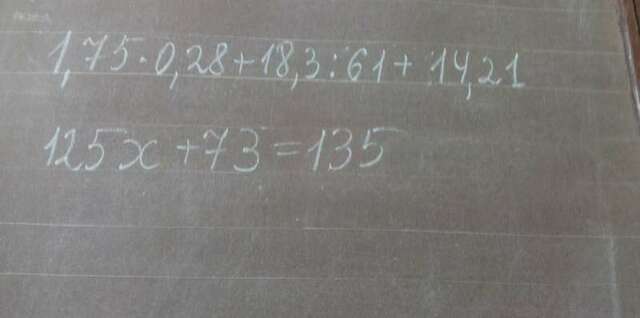 1,75·0,28+18,3:61+14,21
125x+73=135